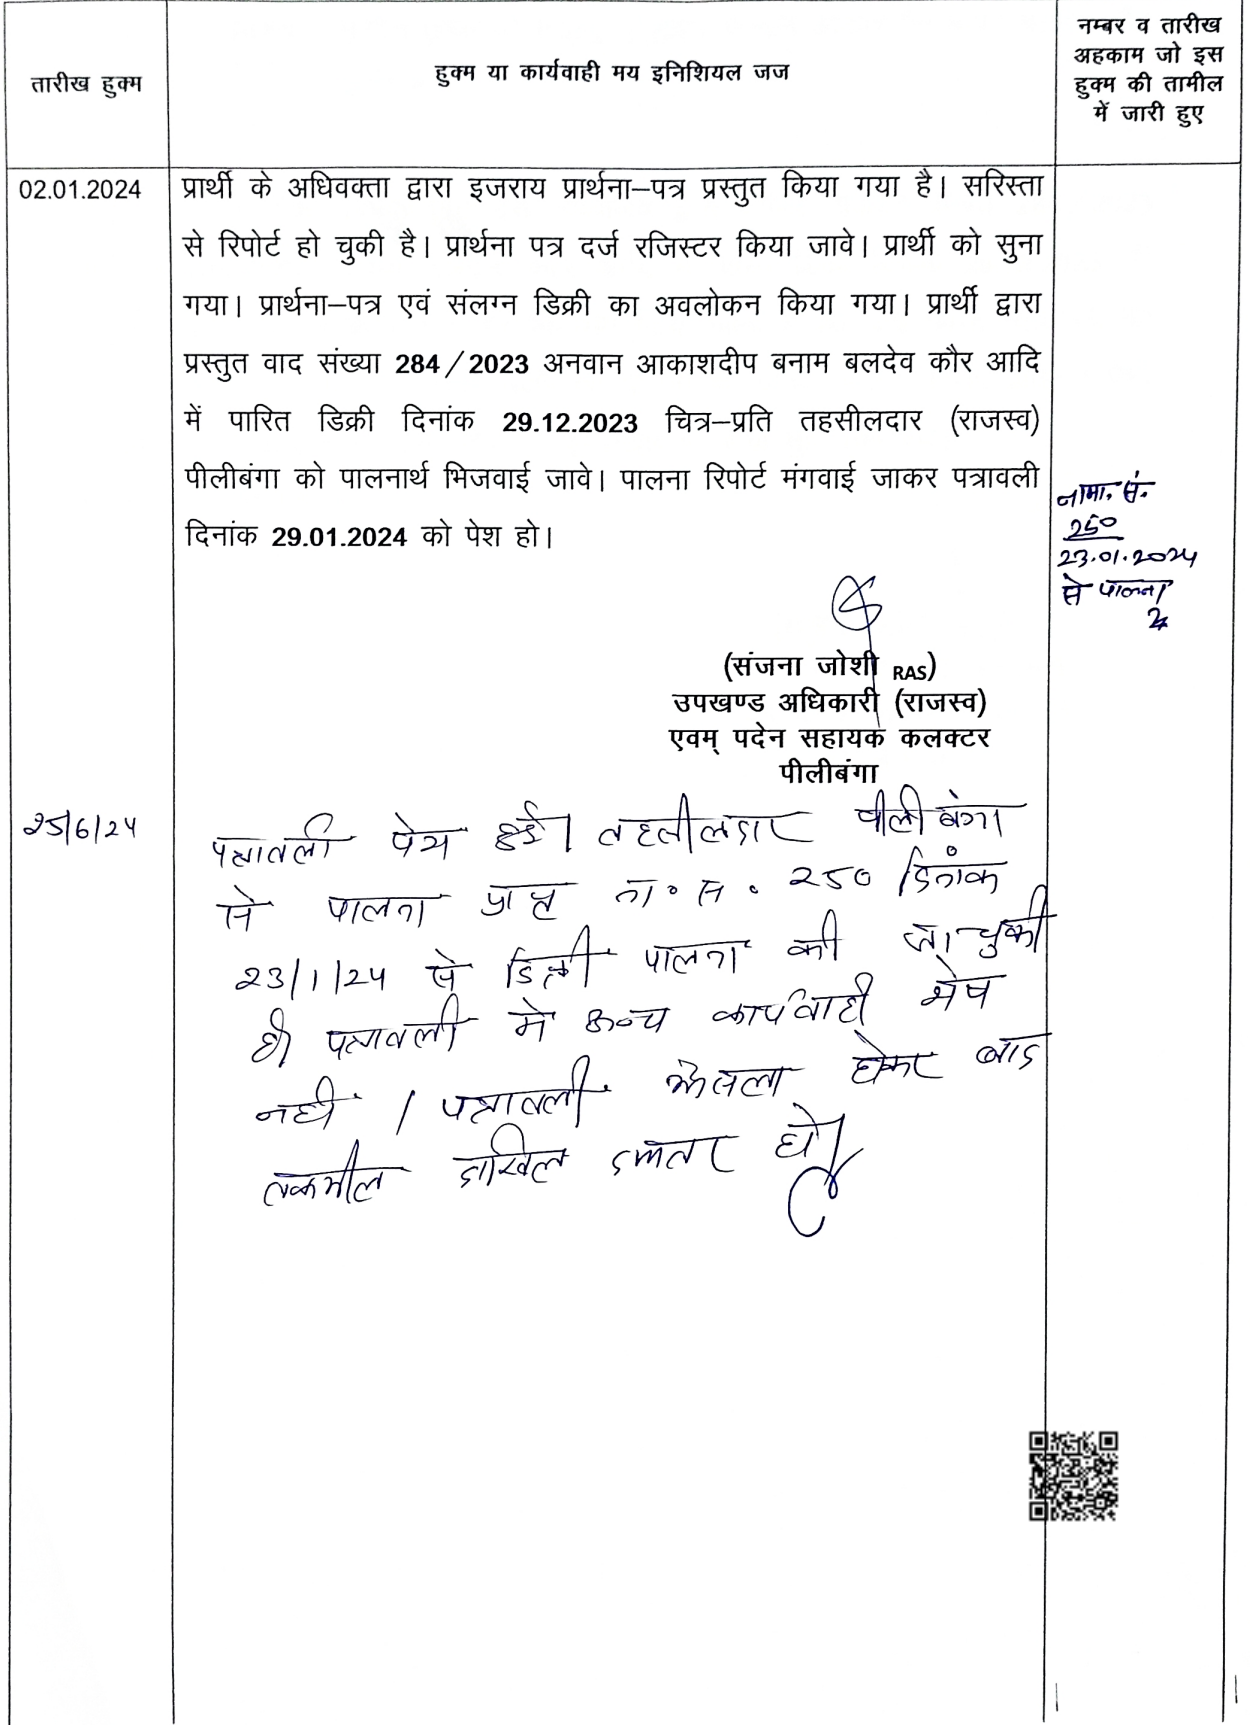 तारीख हुक्म
हुक्म या कार्यवाही मय इनिशियल जज
नम्बर व तारीख
अहकाम जो इस
हुक्म की तामील
में जारी हुए
02.01.2024
प्रार्थी के अधिवक्ता द्वारा इजराय प्रार्थना–पत्र प्रस्तुत किया गया है। सरिस्ता
से रिपोर्ट हो चुकी है। प्रार्थना पत्र दर्ज रजिस्टर किया जावे। प्रार्थी को सुना
गया। प्रार्थना–पत्र एवं संलग्न डिक्री का अवलोकन किया गया। प्रार्थी द्वारा
प्रस्तुत वाद संख्या 284/2023 अनवान आकाशदीप बनाम बलदेव कौर आदि
में पारित डिक्री दिनांक 29.12.2023 चित्र–प्रति तहसीलदार (राजस्व)
पीलीबंगा को पालनार्थ भिजवाई जावे। पालना रिपोर्ट मंगवाई जाकर पत्रावली
दिनांक 29.01.2024 को पेश हो।
नामा. सं.
250
23.01.2024
से पालना
(संजना जोशी RAS)
उपखण्ड अधिकारी (राजस्व)
एवम् पदेन सहायक कलक्टर
पीलीबंगा
25/6/24
पत्रावली पेश हुई। तहसीलदार पीलीबंगा
से पालना प्राप्त ना. स. 250 दिनांक
23/1/24 से डिक्री पालना की जा चुकी
है। पत्रावली मे अन्य कार्यवाही शेष
नही । पत्रावली फैसला होकर बाद
तकमील दाखिल दफ्तर हो।